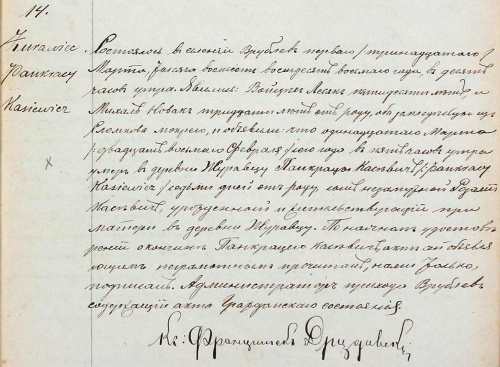 14.
Żurawice
Pankracy
Kasiewicz
Состоялось в селеніи Врублев перваго /тринадцатаго/
Марта тысяча восемьсот восемдесят восьмаго года в десять
часов утра. Явились: Войцех Лесяк пятидесяти лет, и
Михал Новак тридцати лет от роду, оба
и объявили что одинадцатаго Марта
/двадцать восьмаго Февраля/ сего года в пять часов утра
умер в деревни Журавцу Панкрацы Касевич /:Pankracy
Kasiewicz/ седьми дней от роду, сын незамужной
Касевич, урожденной и жительствующей при
матери в деревни Журавцу. По наличном удосто-
рении о кончине Панкрацего Касевич, акт сей объявля-
ющим неграмотным прочитан, нами только,
подписан. Администратор прихода Врублев
содержащій акта Гражданскаго состоянія.
Кс: Францишек